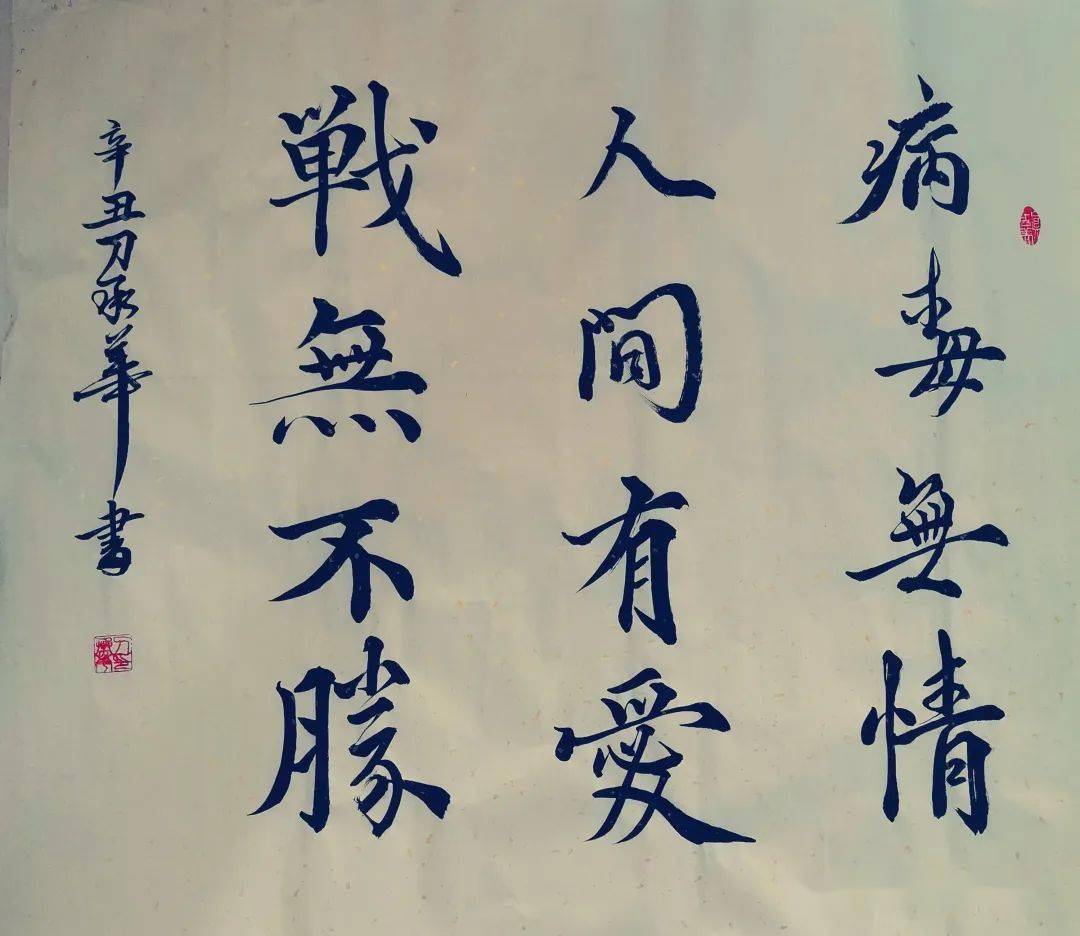 病毒無情
人間有愛
戦無不勝
辛丑刀承華書